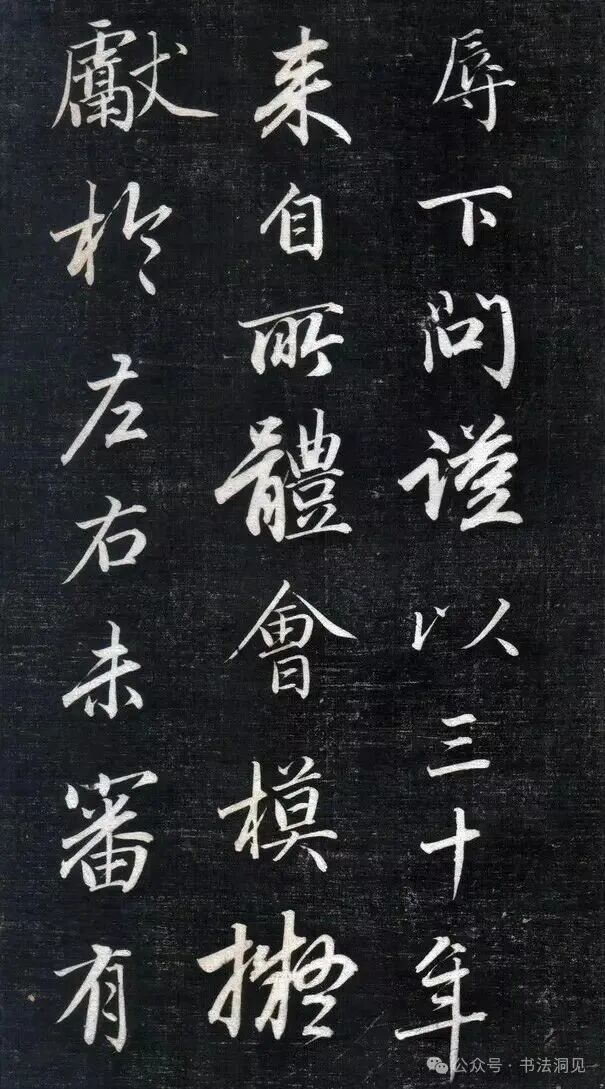 辱下問謹以三十年
来自所體會模擬
獻於左右未審有
公众号·书法洞见